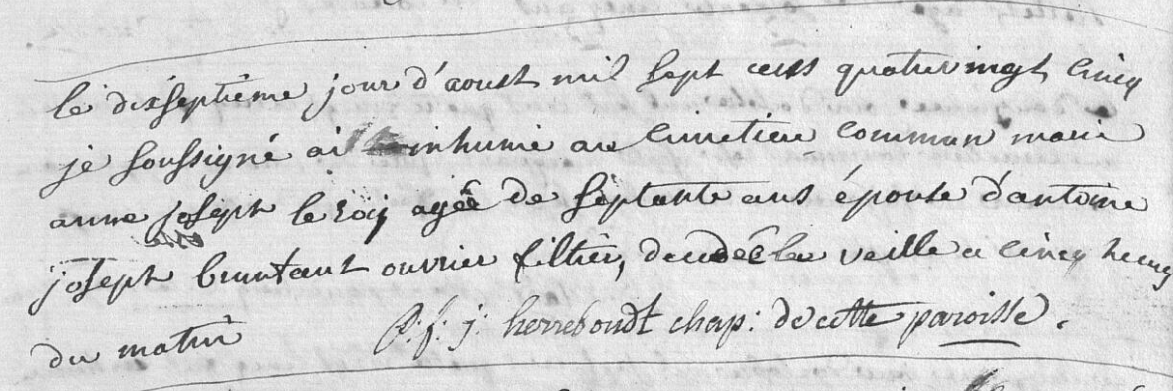 le dixseptième jour d'aoust mil sept cens quatrevingt cinq
je soussigné ai inhumé au cimetiere commun marie
anne joseph le roy agée de septante ans épouse d'antoine
joseph ouvrier filtier, decedée la veille a cinq heures
du matin p: f: j: herreboudt chap: de cette paroisse.